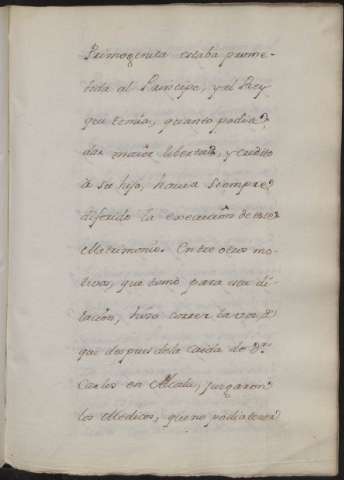 Primogenita estaba prome-
tida al Principe, y el Rey
que temia, quanto podia
dar maior libertad, y credito
à su hijo, havia siempre
diferido la execucion de este
Matrimonio. Entre otros mo-
tivos, que tomó para esta di-
lacion, hizo correr la voz de
que despues de la caida de Dn
Carlos en Alcala, juzgaron
los Medicos, que no podia tener